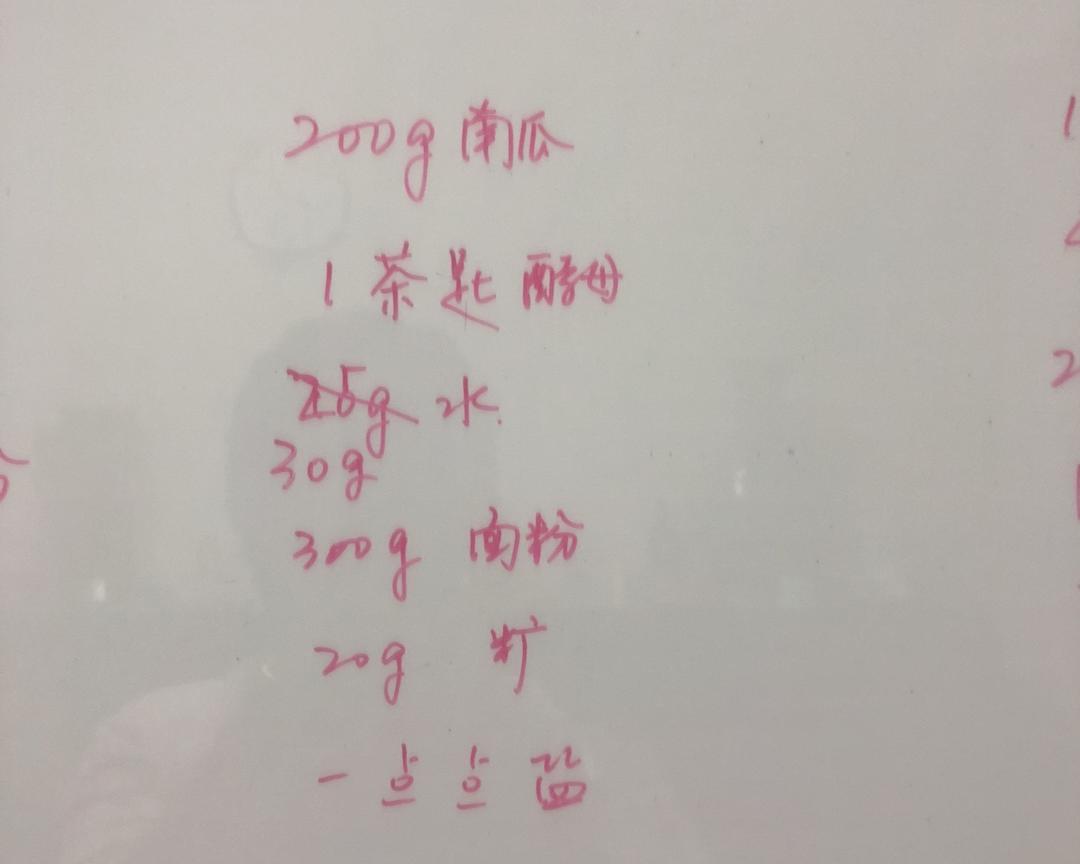 200g 南瓜
1 茶匙 酵母
25g 水
30g
300g 面粉
20g
一点点盐